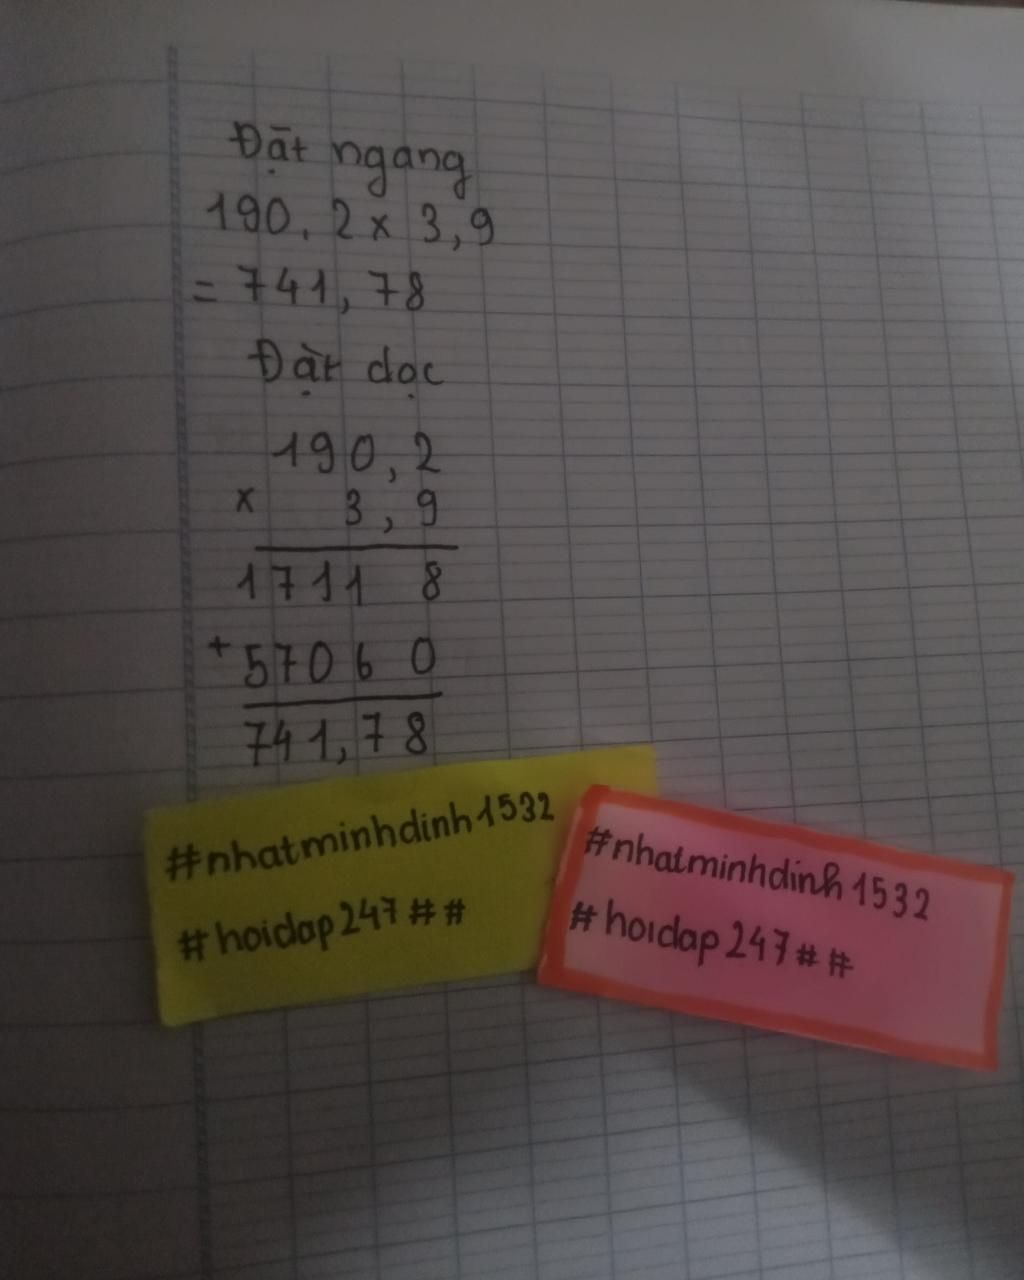 Đặt ngang
190,2 x 3,9
= 741,78
Đặt dọc
190,2
x 3,9
1711 8
+ 5706 0
741,78
#nhatminhdinh1532
#hoidap247##
#nhatminhdinh1532
#hoidap247##